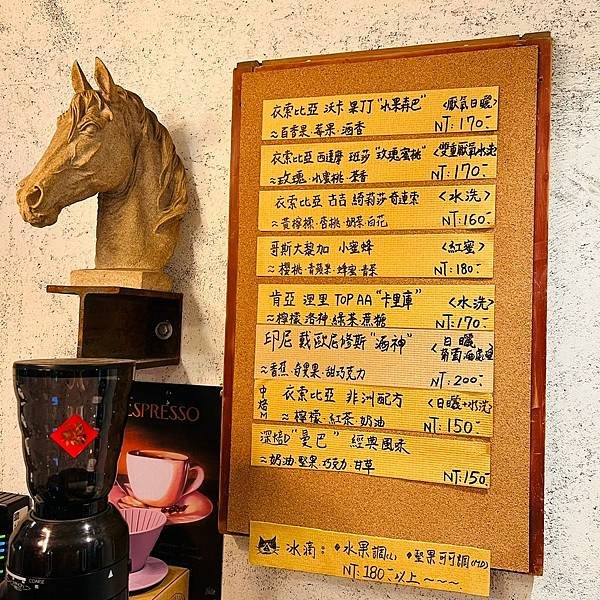 衣索比亞 沃卡 果丁 "水果森巴" <厭氧日曬>
~百香果·莓果·酒香 NT:170-
衣索比亞 西達摩 班莎 "玫瑰蜜桃" <雙重厭氧水洗>
~玫瑰·水蜜桃·茶香 NT:170-
衣索比亞 古吉 綺莉莎奇連索 <水洗>
~黃檸檬·杏桃·奶茶·白花 NT:160-
哥斯大黎加 小蜜蜂 <紅蜜>
~櫻桃·青蘋果·蜂蜜·青茶 NT:180-
肯亞 涅里 TOP AA "卡里庫" <水洗>
~檸檬·洛神·綠茶·蔗糖 NT:170-
印尼 戴歐尼修斯 "酒神" <日曬
~香蕉·百果·甜巧克力 NT:200-
中焙M 衣索比亞 非洲配方 <日曬+水洗>
~檸檬·紅茶·奶油 NT:150-
深焙D "曼巴" 經典風味
~奶油·堅果·巧克力·甘草 NT:150-
冰滴: ♦水果調(L) ♦堅果可可調(M.D)
NT:180-以上~~~
ESPRESSO
COARSE